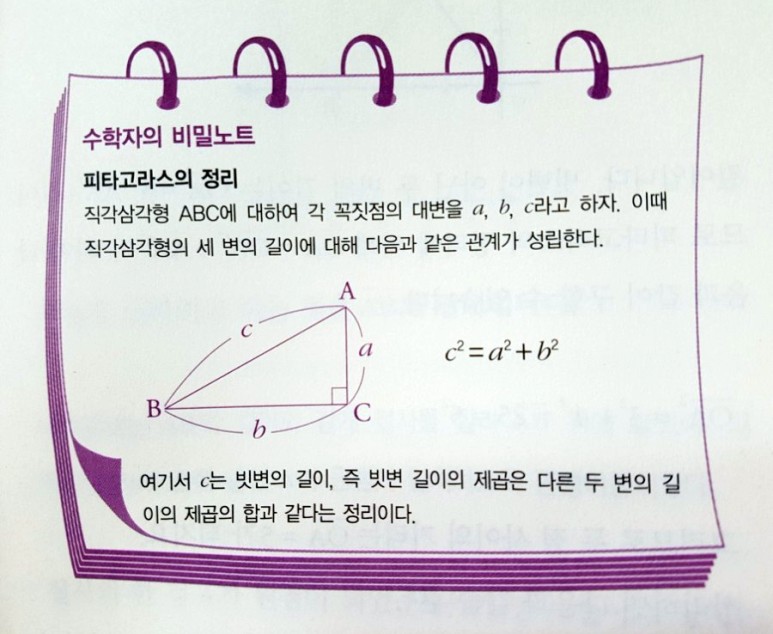 수학자의 비밀노트
피타고라스의 정리
직각삼각형 ABC에 대하여 각 꼭짓점의 대변을 a, b, c라고 하자. 이때
직각삼각형의 세 변의 길이에 대해 다음과 같은 관계가 성립한다.
A
c
a
c²=a²+b²
B
C
b
여기서 c는 빗변의 길이, 즉 빗변 길이의 제곱은 다른 두 변의 길
이의 제곱의 합과 같다는 정리이다.